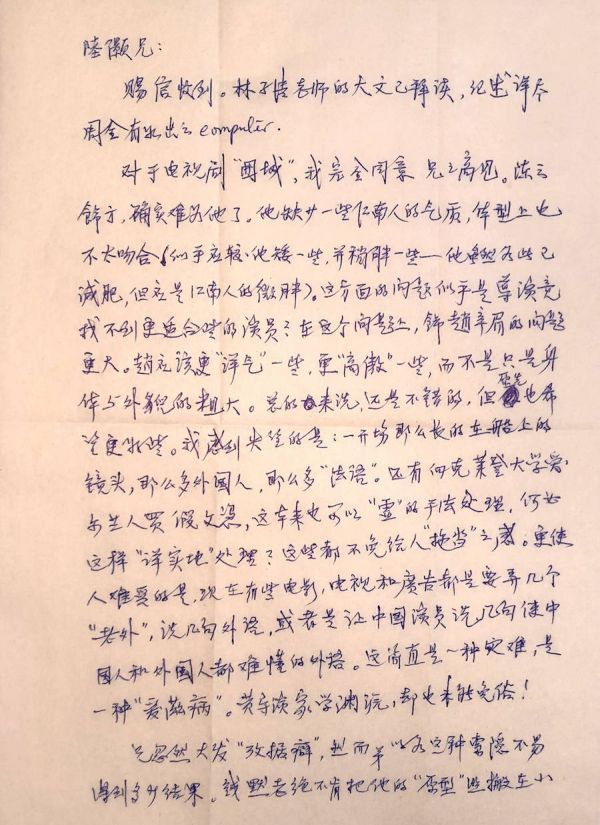 陆灏兄：
赐信收到。林子清老师的大文已拜读，纪述详尽
周全有如出之 computer.
对于电视剧“围城”，我完全同意 兄之高见。陈之
饰方，确实难为他了。他缺少一些江南人的气质，体型上也
不太吻合（似乎应较他矮一些，并稍胖一些——他虽然为此已
減肥，但应是江南人的微胖）。这方面的问题似乎是导演竟
找不到更适合些的演员；在这个问题上，饰趙辛眉的问题
更大。趙应该更“洋气”一些，更“高傲”一些，而不是只是身
体与外貌的粗大。总的来说，还是不错的，但也希
望更好些。我感到失望的是：一开场那么长的在船上的
镜头，那么多外国人，那么多“法语”。还有向克莱登大学爱
尔兰人买假文凭，这本来也可以“虚”的手法处理，何必
这样“详实地”处理？这些都不免给人“拖沓”之感。更使
人难受的是，现在有些电影，电视和廣告都是要弄几个
“老外”，说几句外语，或者是让中国演员说几句使中
国人和外国人都难懂的外语。这简直是一种灾难，是
一种“爱滋病”。黄导演家学渊沅，却也未能免俗！
兄忽然大发“考据癖”，然而弟以为这种索隐不易
得到多少结果。钱默老绝不肯把他的“原型”照搬在小